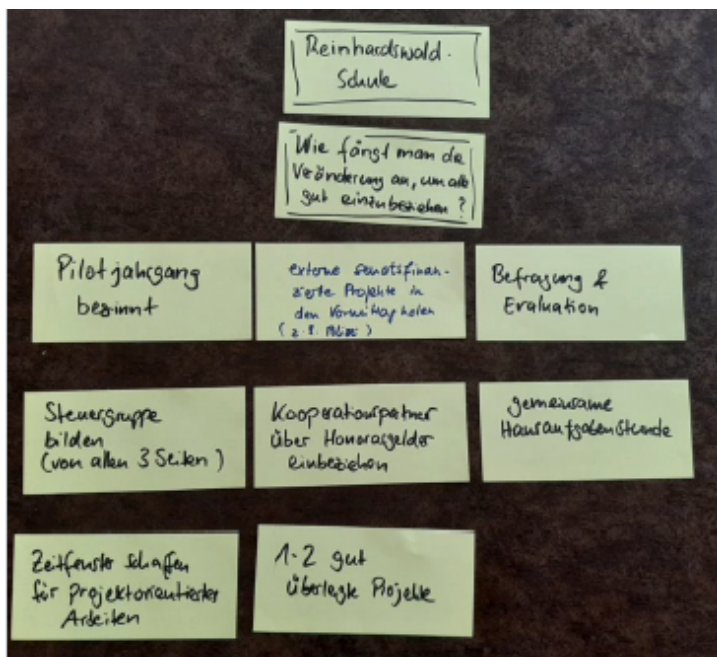 Reinhardswald-
Schule
Wie fängt man die
Veränderung an, um alle
gut einzubeziehen?
Pilotjahrgang
beginnt
externe senatsfinan-
zierte Projekte in
den Vormittag holen
(z.B.
Befragung &
Evaluation
Steuergruppe
bilden
(von allen 3 Seiten)
Kooperationspartner
über Honorargelder
einbeziehen
gemeinsame
Hausaufgabenstunde
Zeitfenster schaffen
für projektorientiertes
Arbeiten
1-2 gut
überlegte Projekte